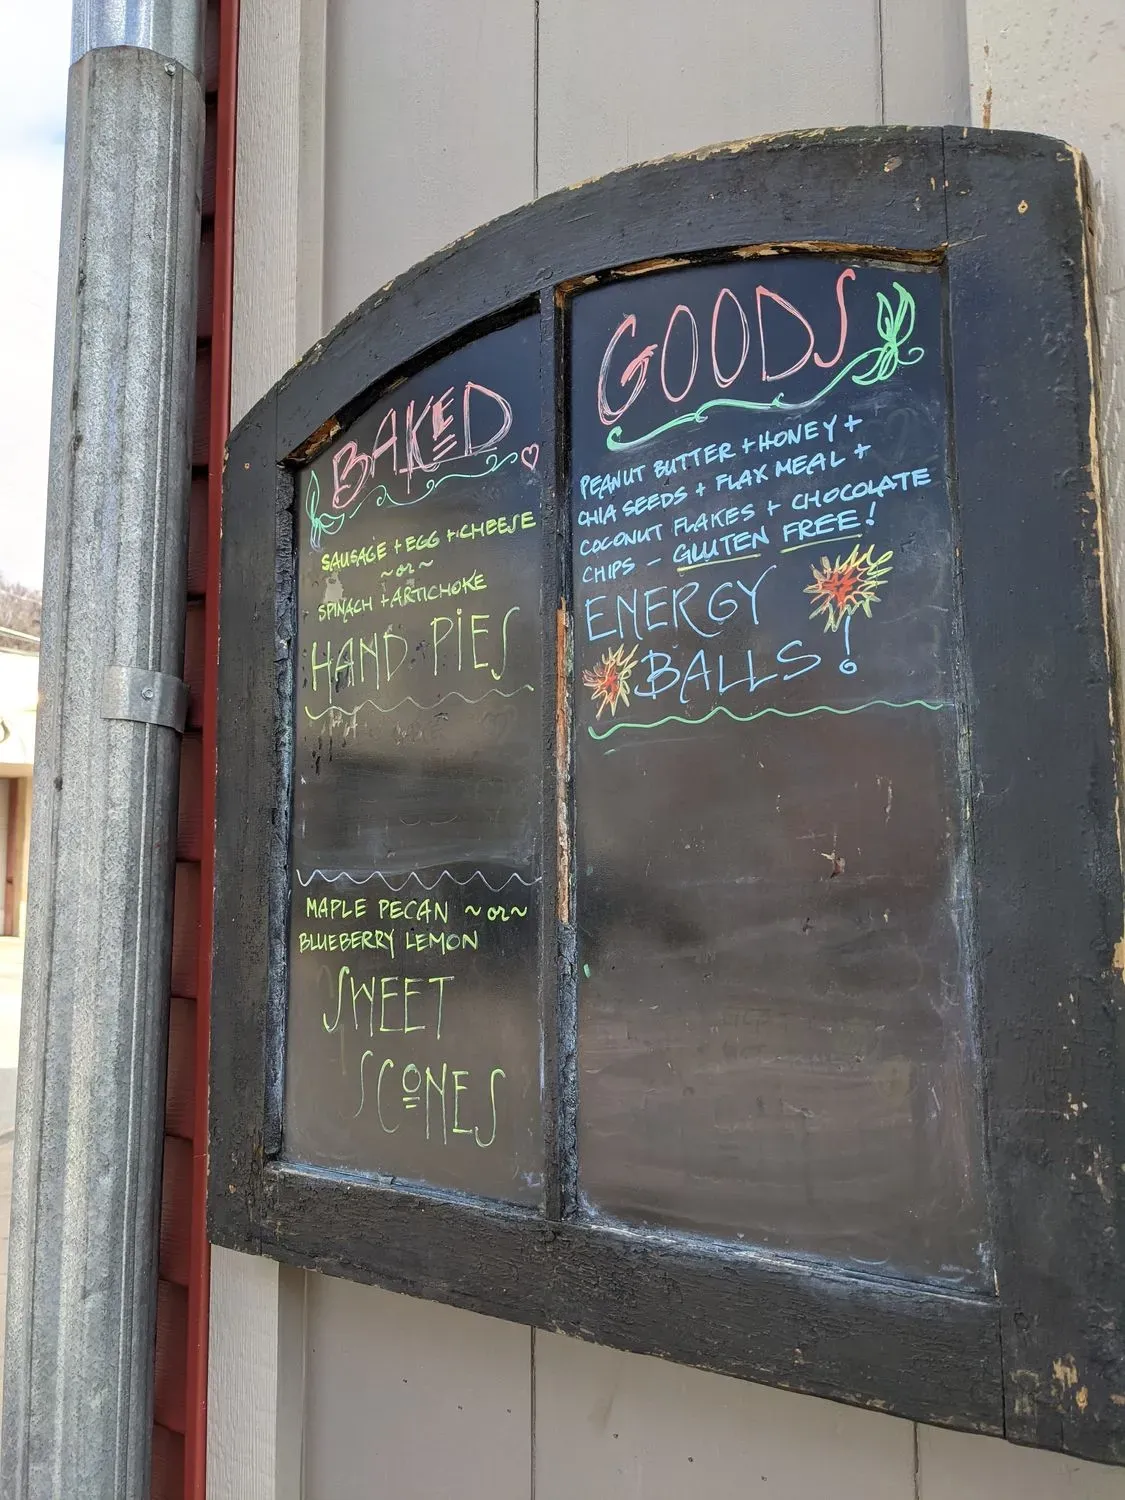 BAKED
SAUSAGE + EGG + CHEESE
~or~
SPINACH + ARTICHOKE
HAND PIES
MAPLE PECAN ~or~
BLUEBERRY LEMON
SWEET
SCONES
GOODS
PEANUT BUTTER + HONEY +
CHIA SEEDS + FLAX MEAL +
COCONUT FLAKES + CHOCOLATE
CHIPS - GLUTEN FREE!
ENERGY
BALLS!